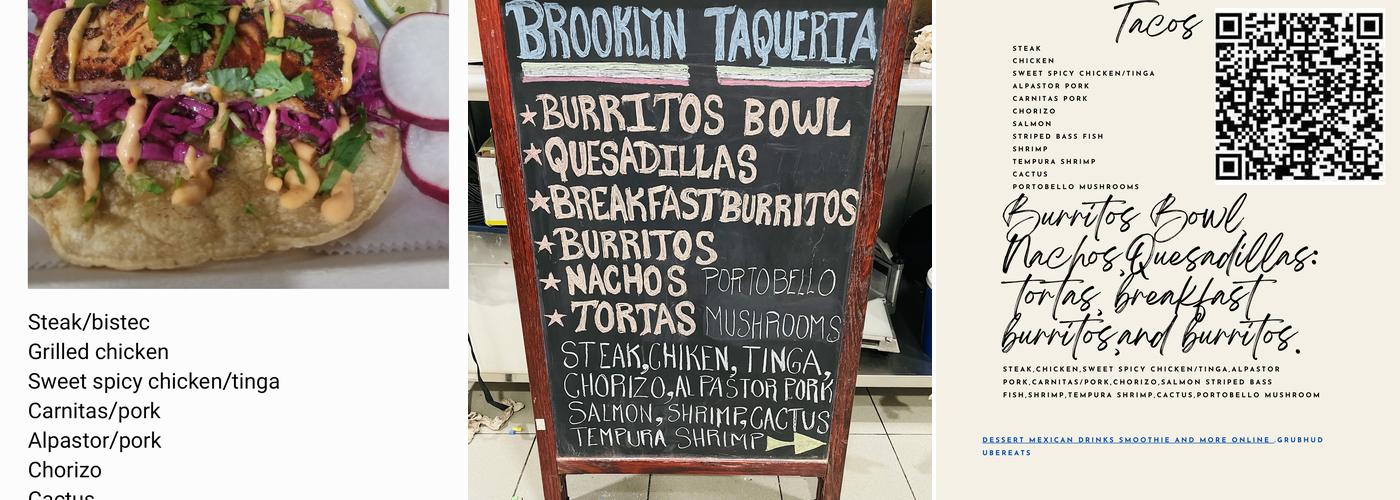 Steak/bistec
Grilled chicken
Sweet spicy chicken/tinga
Carnitas/pork
Alpastor/pork
Chorizo
Cactus
BROOKLYN TAQUERIA
BURRITOS BOWL
QUESADILLAS
BREAKFAST BURRITOS
BURRITOS
NACHOS PORTOBELLO
TORTAS MUSHROOMS
STEAK, CHIKEN, TINGA,
CHORIZO, AL PASTOR PORK
SALMON, SHRIMP, CACTUS
TEMPURA SHRIMP
Tacos
STEAK
CHICKEN
SWEET SPICY CHICKEN/TINGA
ALPASTOR PORK
CARNITAS PORK
CHORIZO
SALMON
STRIPED BASS FISH
SHRIMP
TEMPURA SHRIMP
CACTUS
PORTOBELLO MUSHROOMS
Burritos Bowl,
Nachos,Quesadillas:
tortas, breakfast
burritos,and burritos.
STEAK,CHICKEN,SWEET SPICY CHICKEN/TINGA,ALPASTOR
PORK,CARNITAS/PORK,CHORIZO,SALMON STRIPED BASS
FISH,SHRIMP,TEMPURA SHRIMP,CACTUS,PORTOBELLO MUSHROOM
DESSERT MEXICAN DRINKS SMOOTHIE AND MORE ONLINE .GRUBHUD
UBEREATS